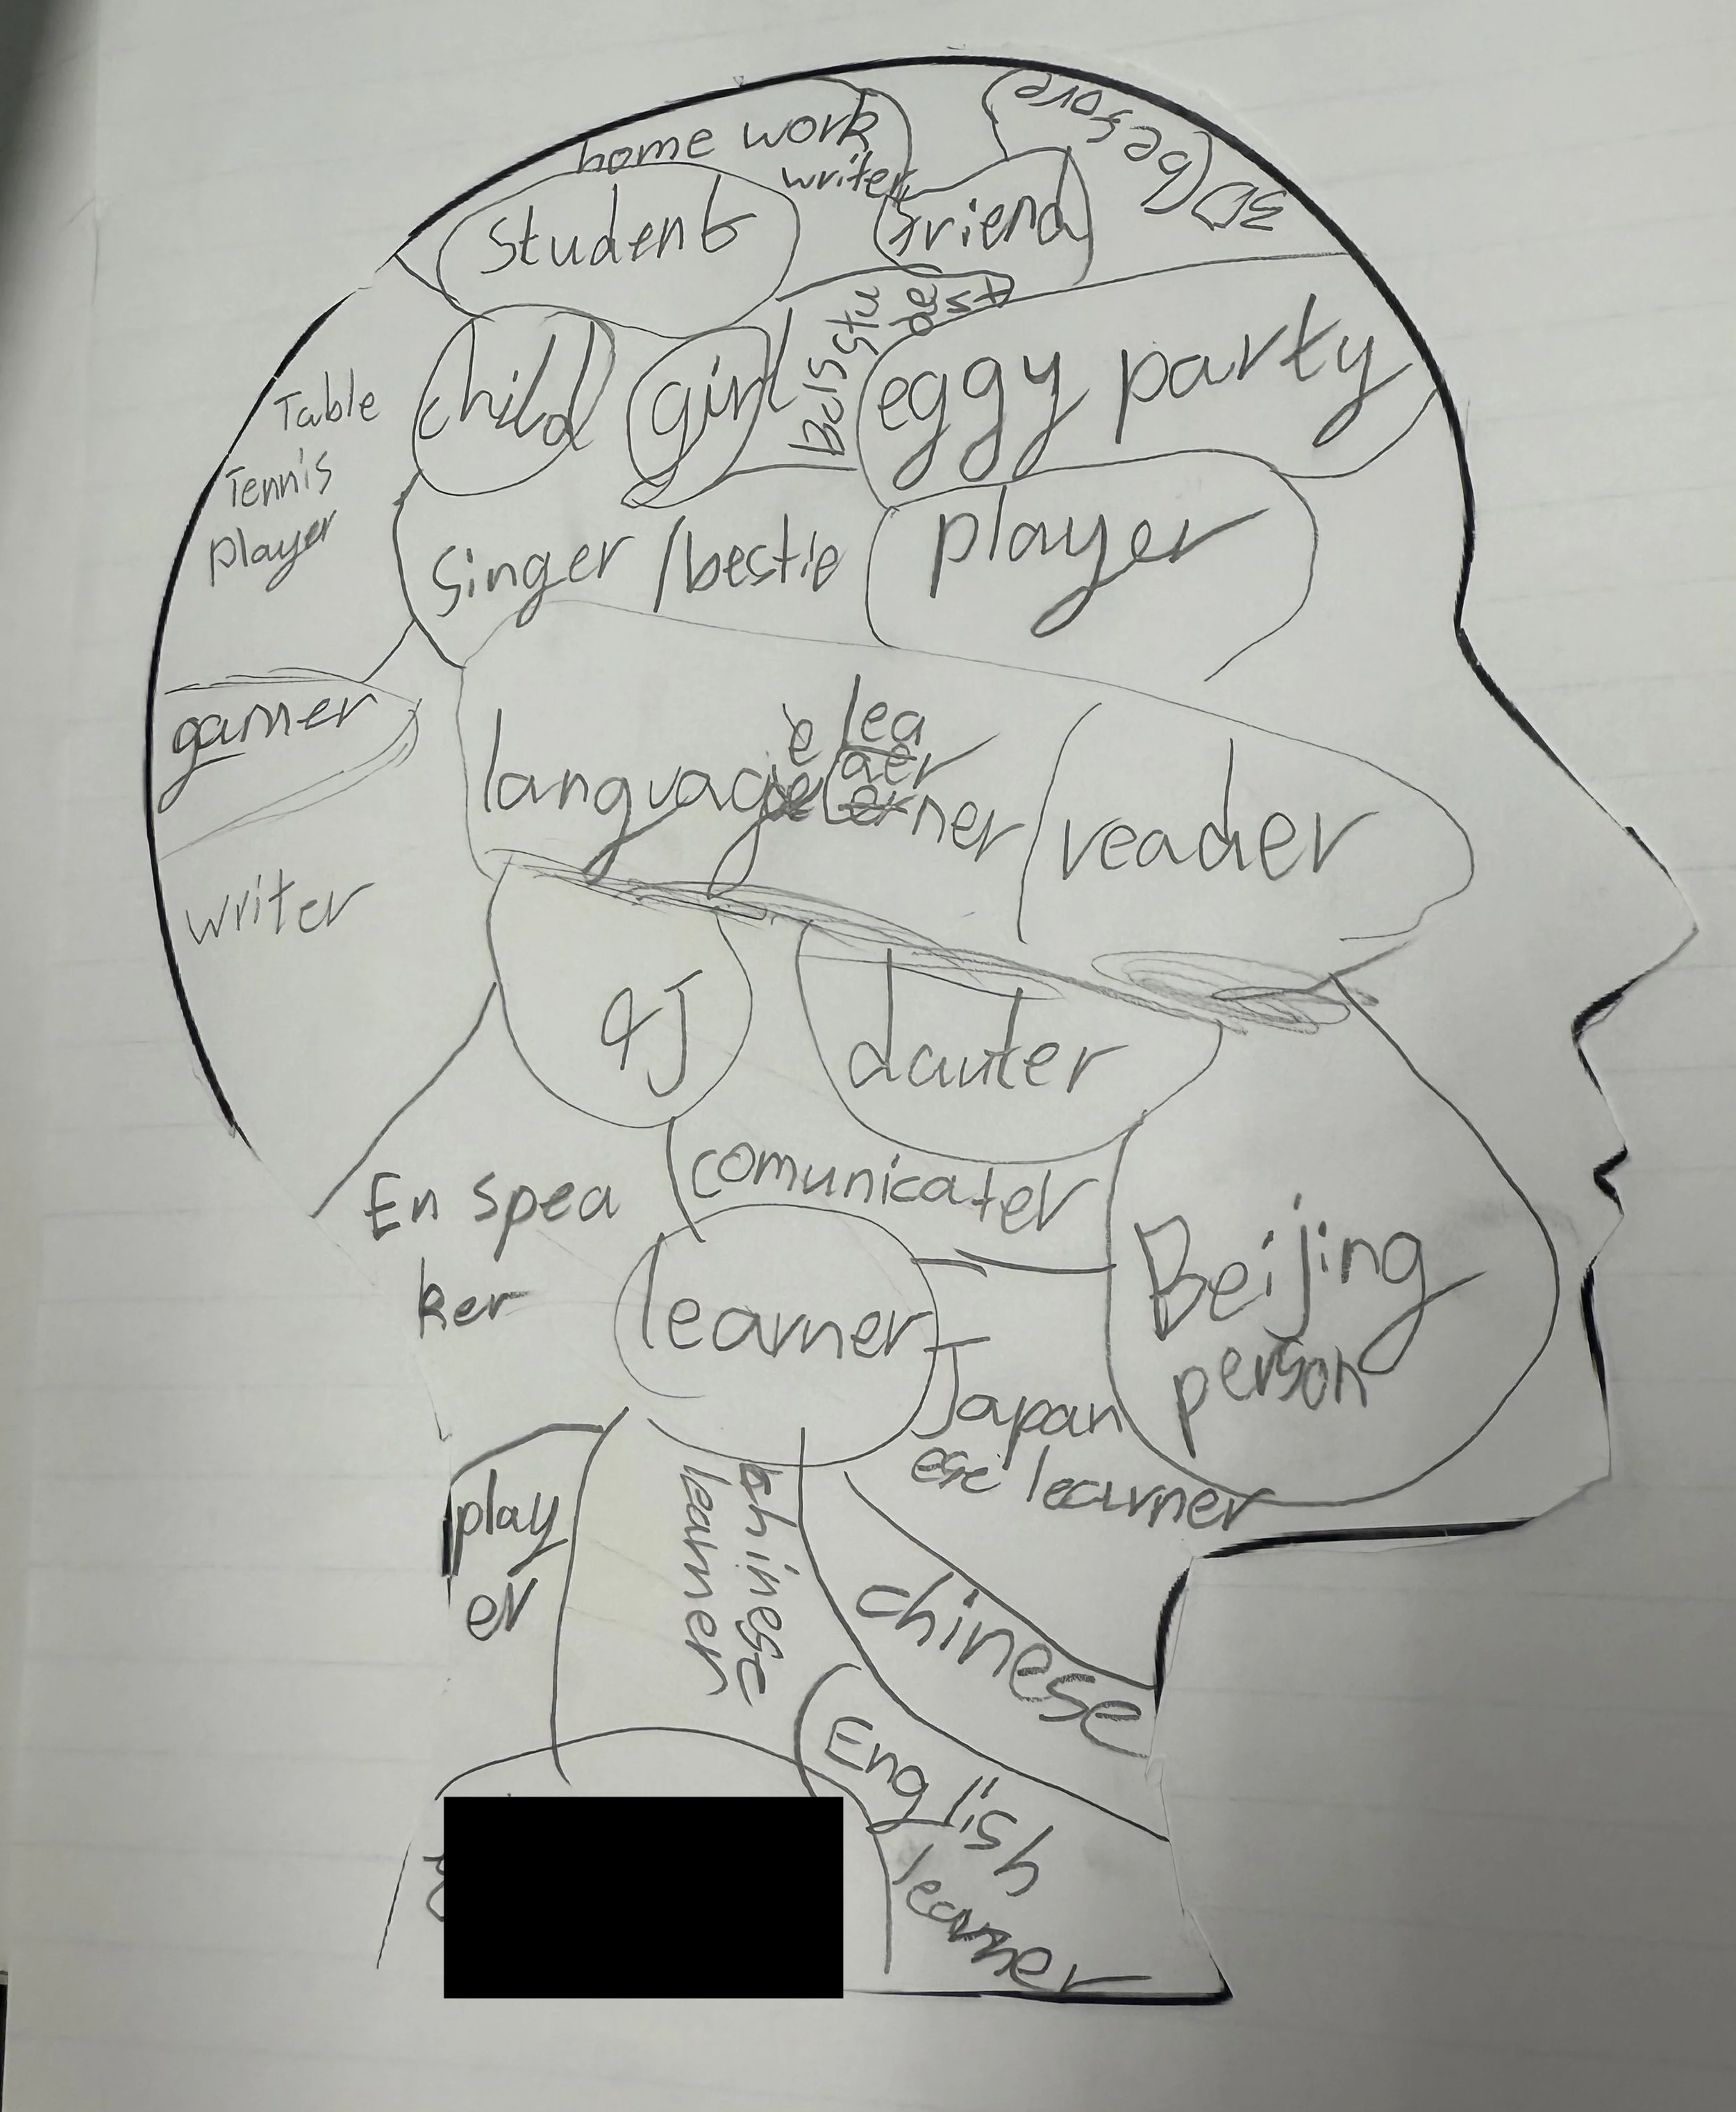 home work
writer
3D(before)
student
friend
BUISSstu
de
st
child
girl
eggy party
Table
Tennis
player
singer /bestie
player
gamer
language learner
reader
writer
4J
dauter
En spea
ker
comunicater
learner
Beijing
person
Japan
ese learner
play
er
chinese
learner
chinese
English
learner